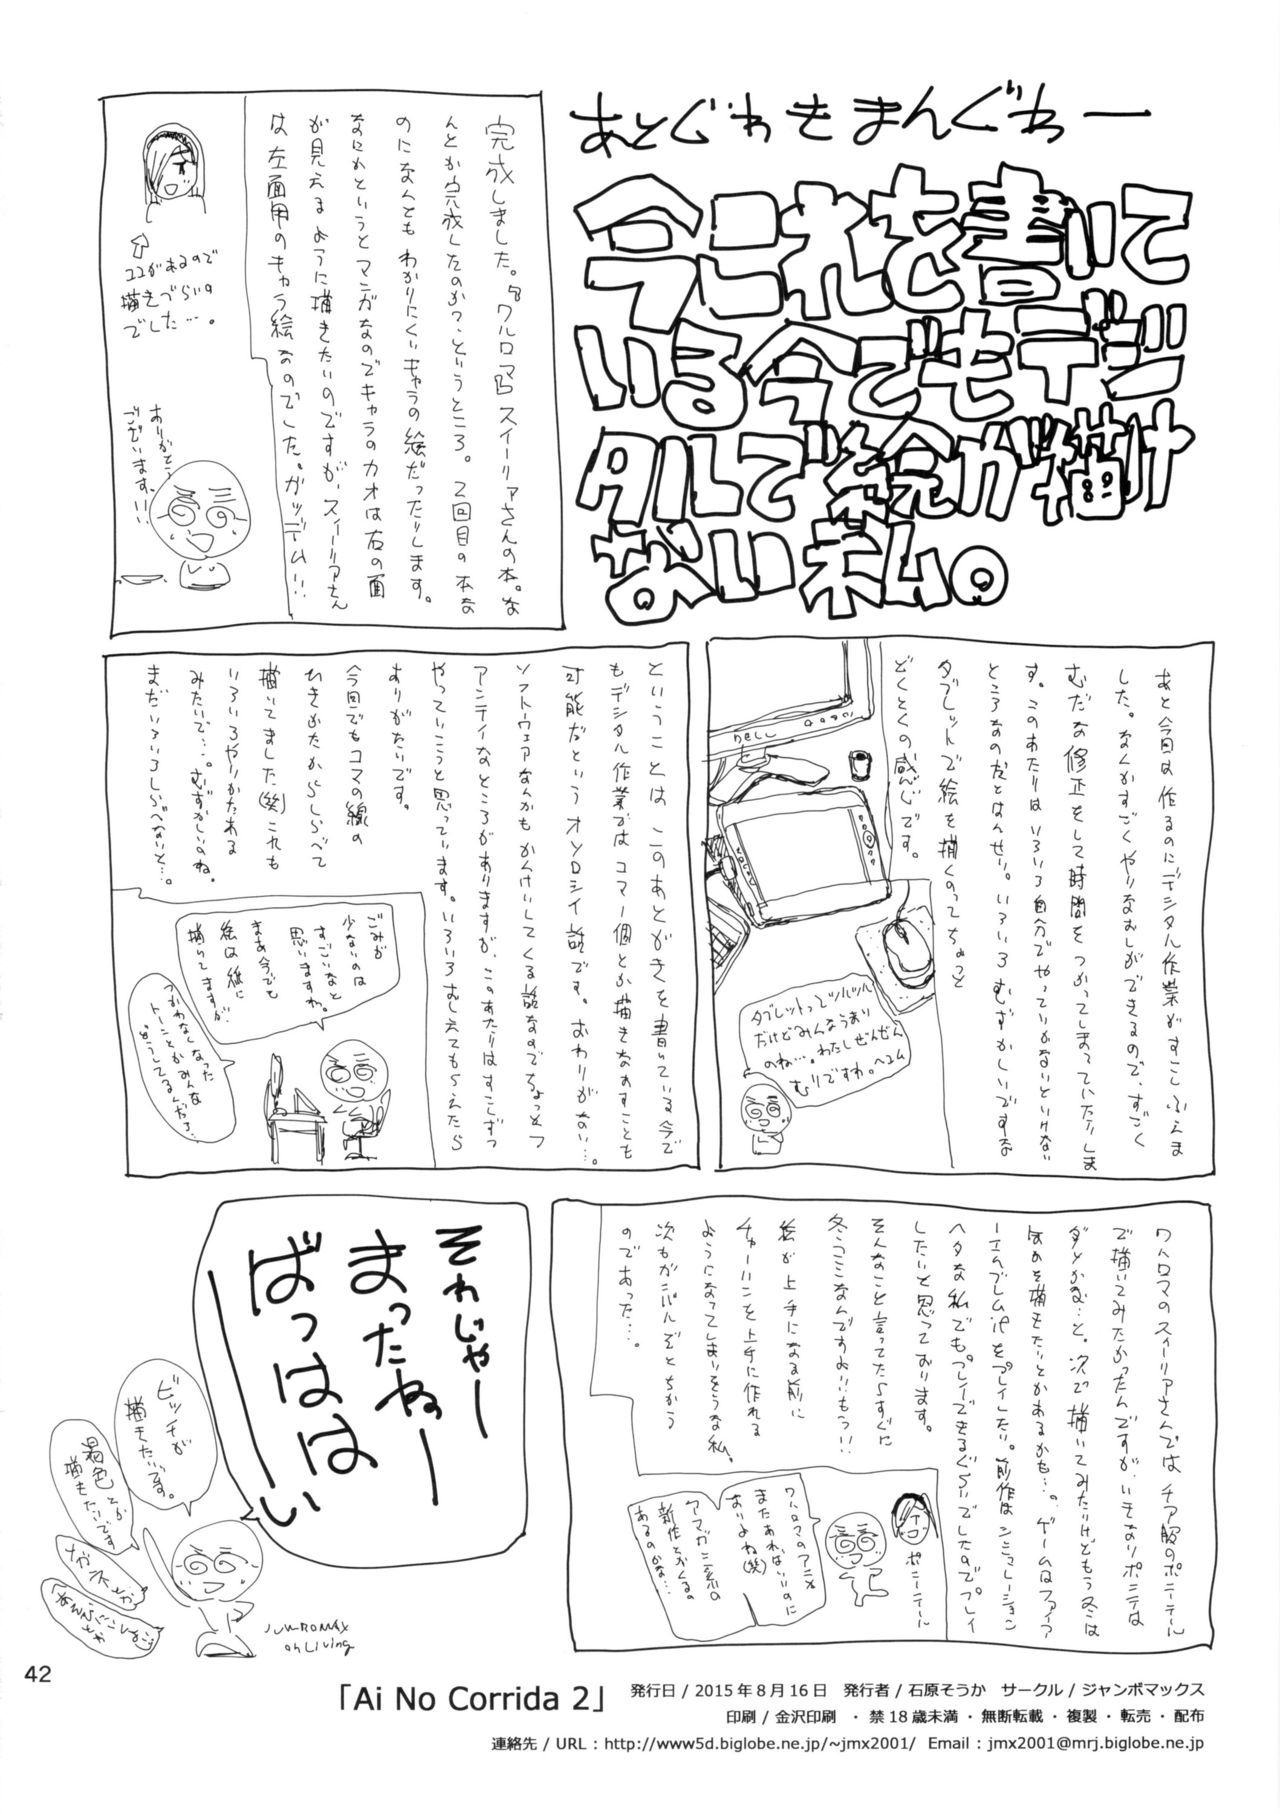 あとぐわもまんぐわー
今これを書いて
いる今でもデジ
タルで絵が描け
ない私。
完成しました。『ワルロマ』スイーリアさんの本。な
んとか完成したのかっ、というところ。2回目の本な
のになんともわかりにくいキャラの絵だったりします。
なにかというとマンガなのでキャラのカオは右の面
が見えるように描きたいのですが、スイーリアさん
は左面用のキャラ絵なのでした。ガッデーム!!
ココがあるので
描きづらいの
でした…。
ありがとう
ございます!!
あと今回は作るのにデジタル作業がすこしふえま
した。なんかすごくやりなおしができるので、すごく
むだな修正をして時間をつかってしまっていたりしま
す。このあたりはいろいろ自分でやっていかないといけない
ところなのだとはんせい。いろいろむずかしいですな
タブレットで絵を描くのってちょっと
どくとくの感じです。
DELL
タブレットってツルツル
だけどみんなうまい
のね…。わたしぜんぜん
むりですわ。ヘコム
ということは このあとがきを書いている今で
もデジタル作業ではコマ一個とか描きなおすことも
可能だというオソロシイ話です。おわりがない…。
ソフトウェアなんかもかんけいしてくる話なのでちょっとフ
アンティなところがありますが、このあたりはすこしずつ
やっていこうと思っています。いろいろおしえてもらえたら
ありがたいです。
今回でもコマの線の
ひきかたからしらべて
描いてました(笑)これも
いろいろやりかたある
みたいで…。むずかしいのね。
まだいろいろしらべないと…。
ごみが
少ないのは
すごいなと
思いますね。
まあ今でも
絵は紙に
描いてますが
つかわなくなった
トーンとかみんな
どうしてるんだろ…
ワルロマのスイーリアさんではチア服のポニーテール
で描いてみたかったんですが、いきなりポニテは
ダメかな…と。次で描いてみたいけどもう冬は
を描きたいとかあるかも…。ゲームはファイア
ーエムブレムifをプレイしたい。前作はシミュレーション
ヘタな私でもプレイできるぐらいでしたのでプレイ
したいと思っております。
そんなこと言ってたらすぐに
冬コミなんですよ!!もうっ!!
絵が上手になる前に
チャーハンを上手に作れる
ようになってしまいそうな私。
次もガンバルぞとちかう
のであった…。
ポニーテール
ワルロマのアニメ
またあればいいのに
なおいよね(笑)
アマガミ系の
新作とかくるの
あるのかな…
それじゃー
まったねー
ばっははーい
ビッチが
描きたいです。
褐色とか
描きたいです
メガネとか
JUMBOMAX
on Living
42
「Ai No Corrida 2」
発行日 / 2015年8月16日 発行者 / 石原そうか サークル / ジャンボマックス
印刷 / 金沢印刷 ・ 禁18歳未満 ・ 無断転載 ・ 複製 ・ 転売 ・ 配布
連絡先 / URL : http://www5d.biglobe.ne.jp/~jmx2001/ Email : jmx2001@mrj.biglobe.ne.jp